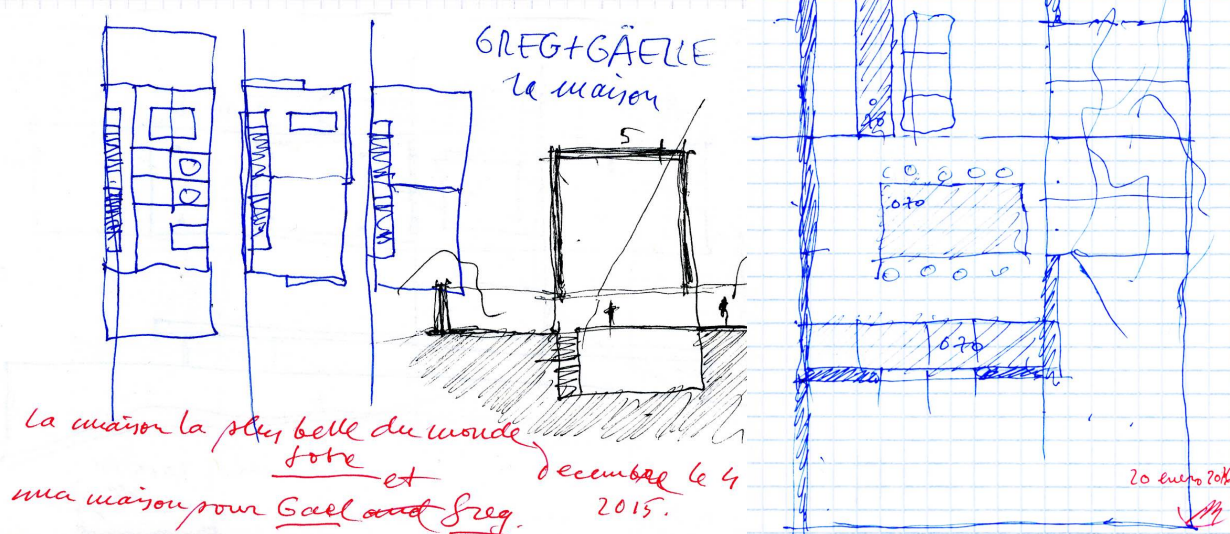 GREG+GÄELLE
la maison
5
la maison la plus belle du monde
et
una maison pour Gael and Greg.
Decembre le 4
2015.
070
070
20 enero 2016